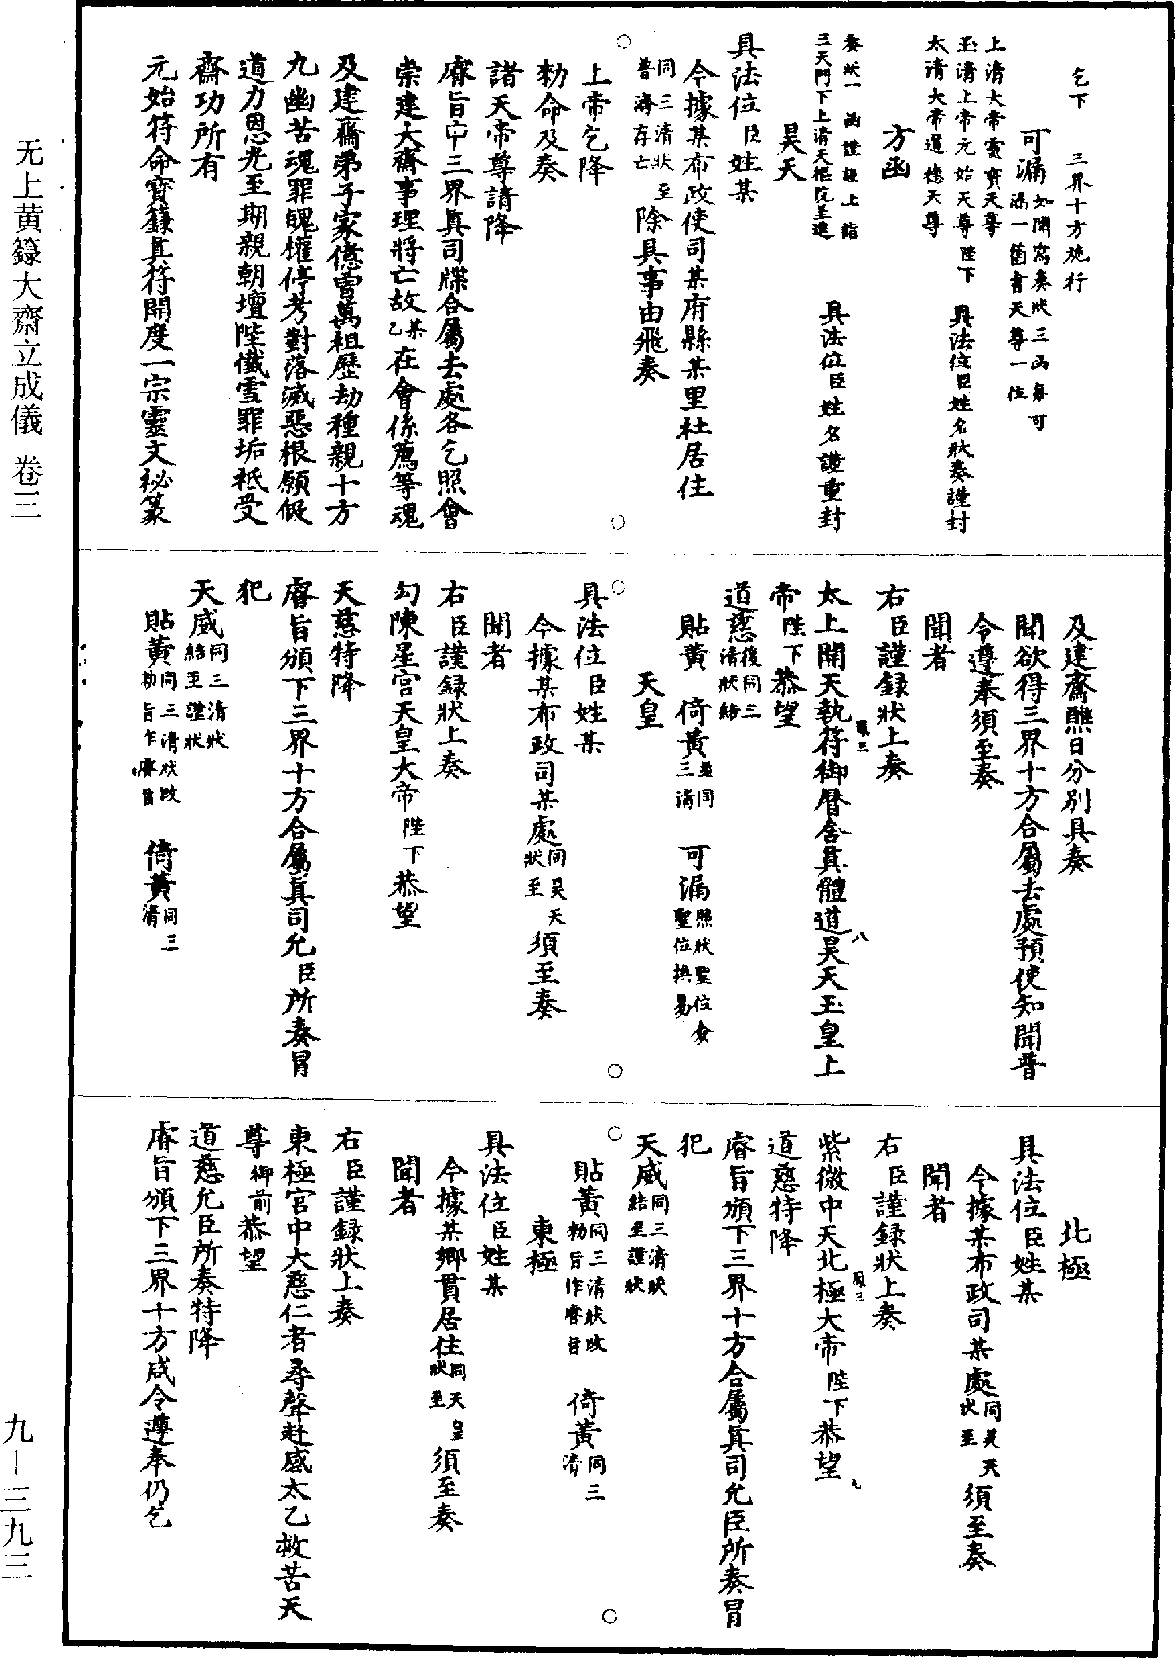 乞下　三界十方施行
可漏如開寫奏狀三函每可漏一箇書天尊一位
上清大帝靈寶天尊
玉清上帝元始天尊陛下　具法位臣姓名狀奏謹封
太清大帝道德天尊
方函
奏狀一函謹謹上詣
三天門下上清天樞院呈進　具法位臣姓名謹重封
昊天
具法位臣姓某
今據某布政使司某府縣某里社居住
同三清狀至普濟存亡除具事由飛奏
上帝乞降
勑命及奏
諸天帝尊請降
睿旨中三界真司牒合屬去處各乞照會
崇建大齋事理將亡故某乙在會係薦等魂
及建齋弟子家億曾萬祖歷劫種親十方
九幽苦魂罪魄權停考對落滅惡根願假
道力恩光至期親朝壇陛懺雪罪垢祇受
齋功所有
元始符命寶籙真符開度一宗靈文秘篆
及建齋醮日分別具奏
聞欲得三界十方合屬去處預使知聞普
令遵奉須至奏
聞者
右臣謹録狀上奏
太上開天執符御曆含真體道昊天玉皇上
帝陛下恭望
道慈後同三清狀結
貼黃　倚黃並同三清　可漏照狀聖位食聖位換易
天皇
具法位臣姓某
今據某布政司某處同昊天狀至須至奏
聞者
右臣謹録狀上奏
勾陳星宮天皇大帝陛下恭望
天慈特降
睿旨頒下三界十方合屬真司允臣所奏冒
犯
天威同三清狀結至謹狀
貼黃同三清狀改勑旨作睿旨　倚黃同三清
北極
具法位臣姓某
今據某布政司某處同昊天狀至須至奏
聞者
右臣謹録狀上奏
紫微中天北極大帝陛下恭望
道慈特降
睿旨頒下三界十方合屬真司允臣所奏冒
犯
天威同三清狀結至謹狀
貼黃同三清狀改勑旨作睿旨　倚黃同三清
東極
具法位臣姓某
今據某鄉貫居住同天皇狀至須至奏
聞者
右臣謹録狀上奏
東極宮中大慈仁者尋聲赴感太乙救苦天
尊御前恭望
道慈允臣所奏特降
睿旨頒下三界十方咸令遵奉仍乞
无上黄籙大齋立成儀　卷三
九—三九三